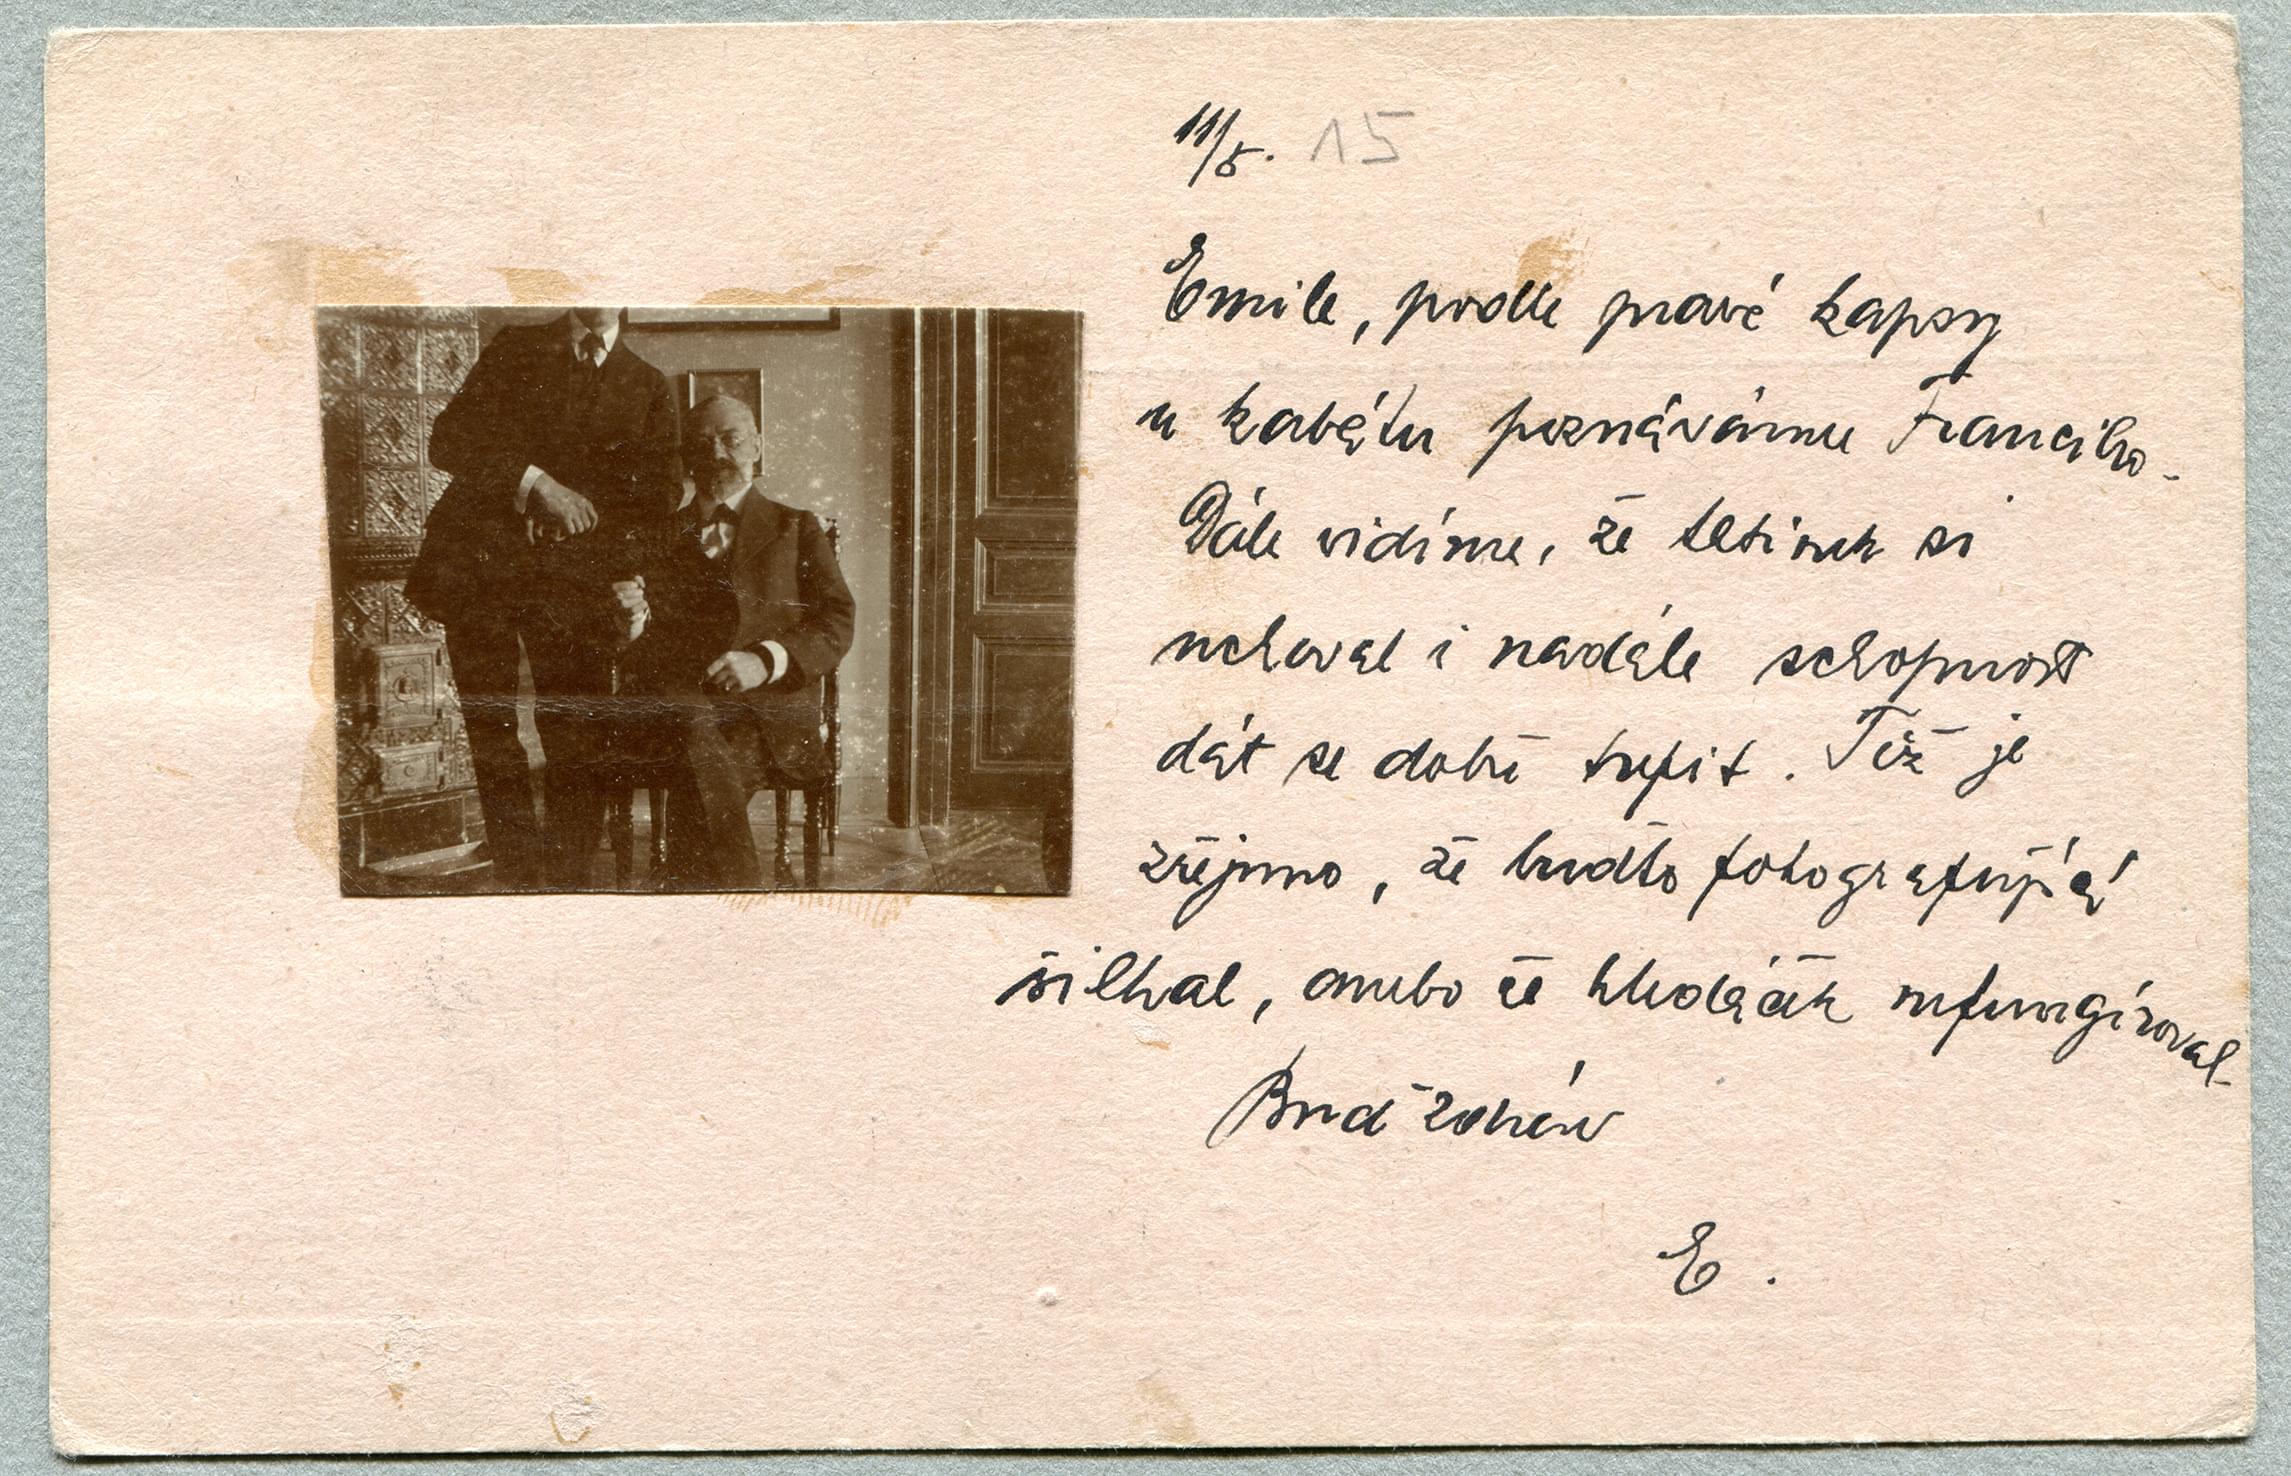 11/5. 15
Emile, podle pravé kapsy
u kabátu poznáváme Franciho.
Dále vidíme, že tatinek si
uchoval i nadále schopnost
dát se dobře trefit. Též je
zřejmo, že buďto fotografující
šilhal, anebo že hledáček nefungíroval
Buď zdráv
E.